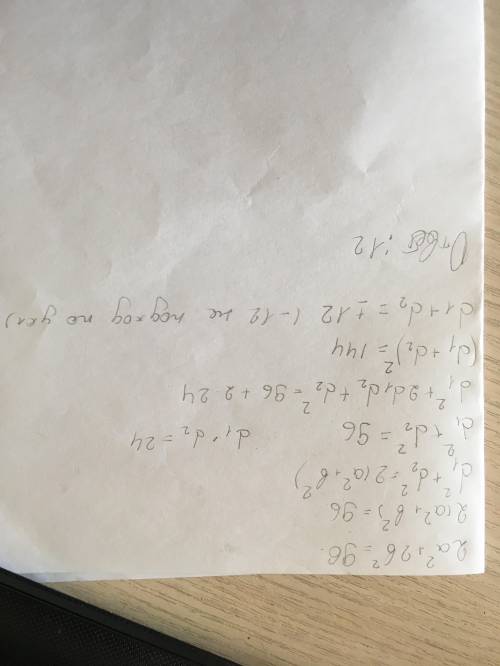 2a² + 2b² = 96.
2(a² + b²) = 96
d₁² + d₂² = 2(a² + b²)
d₁² + d₂² = 96 d₁ · d₂ = 24
d₁² + 2d₁d₂ + d₂² = 96 + 2 · 24
(d₁ + d₂)² = 144
d1 + d₂ = ± 12 (-12 не подход по усл)
Ответ: 12